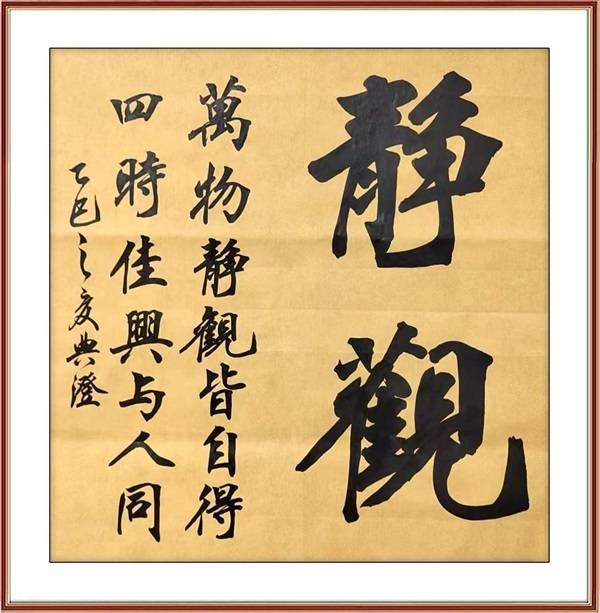 靜觀
萬物靜觀皆自得
四時佳興与人同
乙巳之夏典澄